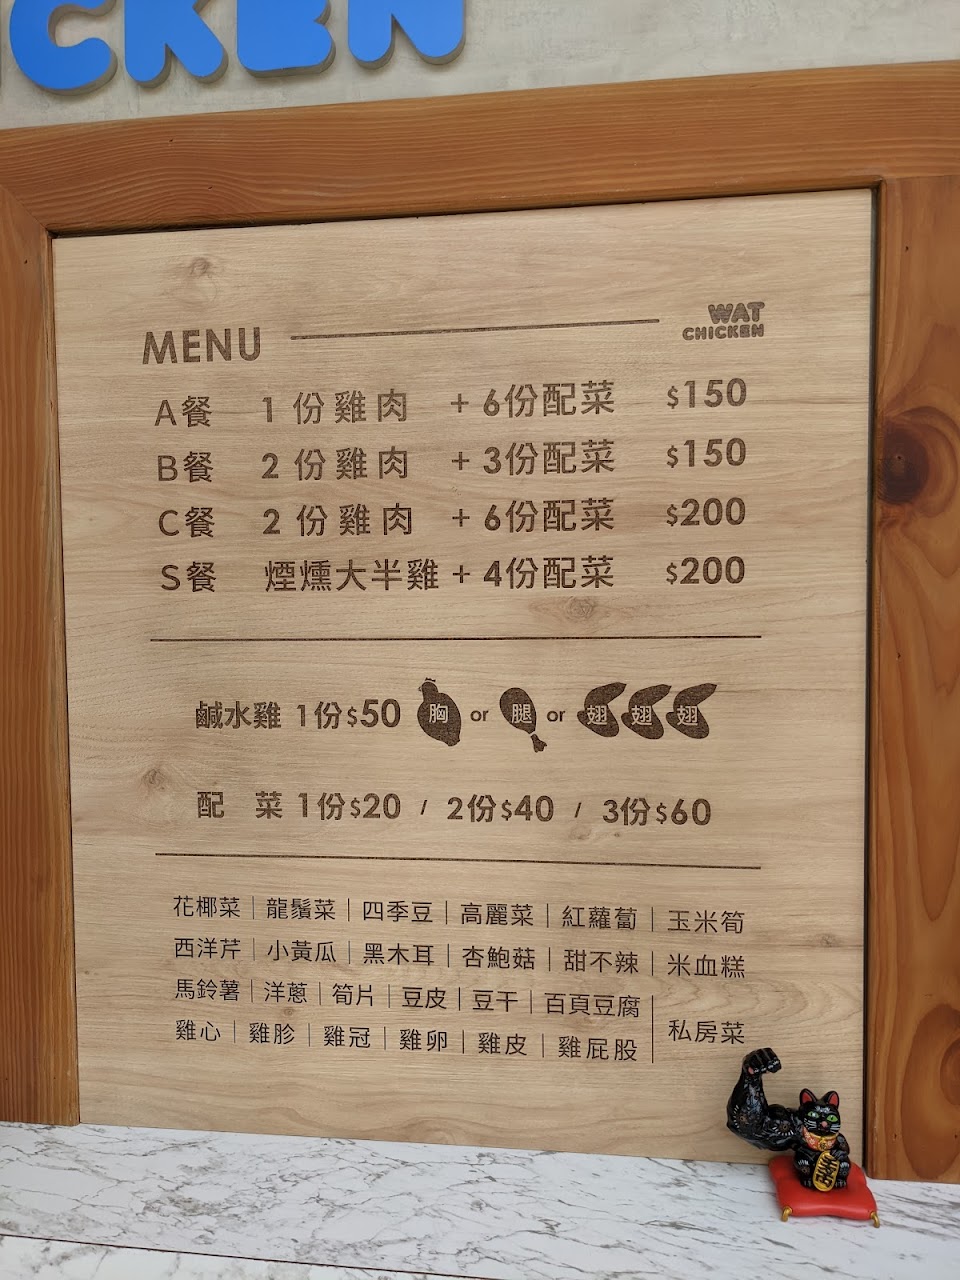 CKEN
MENU
WAT
CHICKEN
A餐 1份雞肉 + 6份配菜 $150
B餐 2份雞肉 + 3份配菜 $150
C餐 2份雞肉 + 6份配菜 $200
S餐 煙燻大半雞 + 4份配菜 $200
鹹水雞 1份$50 胸 or 腿 or 翅 翅 翅
配菜 1份$20 / 2份$40 / 3份$60
花椰菜 | 龍鬚菜 | 四季豆 | 高麗菜 | 紅蘿蔔 | 玉米筍
西洋芹 | 小黃瓜 | 黑木耳 | 杏鮑菇 | 甜不辣 | 米血糕
馬鈴薯 | 洋蔥 | 筍片 | 豆皮 | 豆干 | 百頁豆腐
雞心 | 雞胗 | 雞冠 | 雞卵 | 雞皮 | 雞屁股 | 私房菜